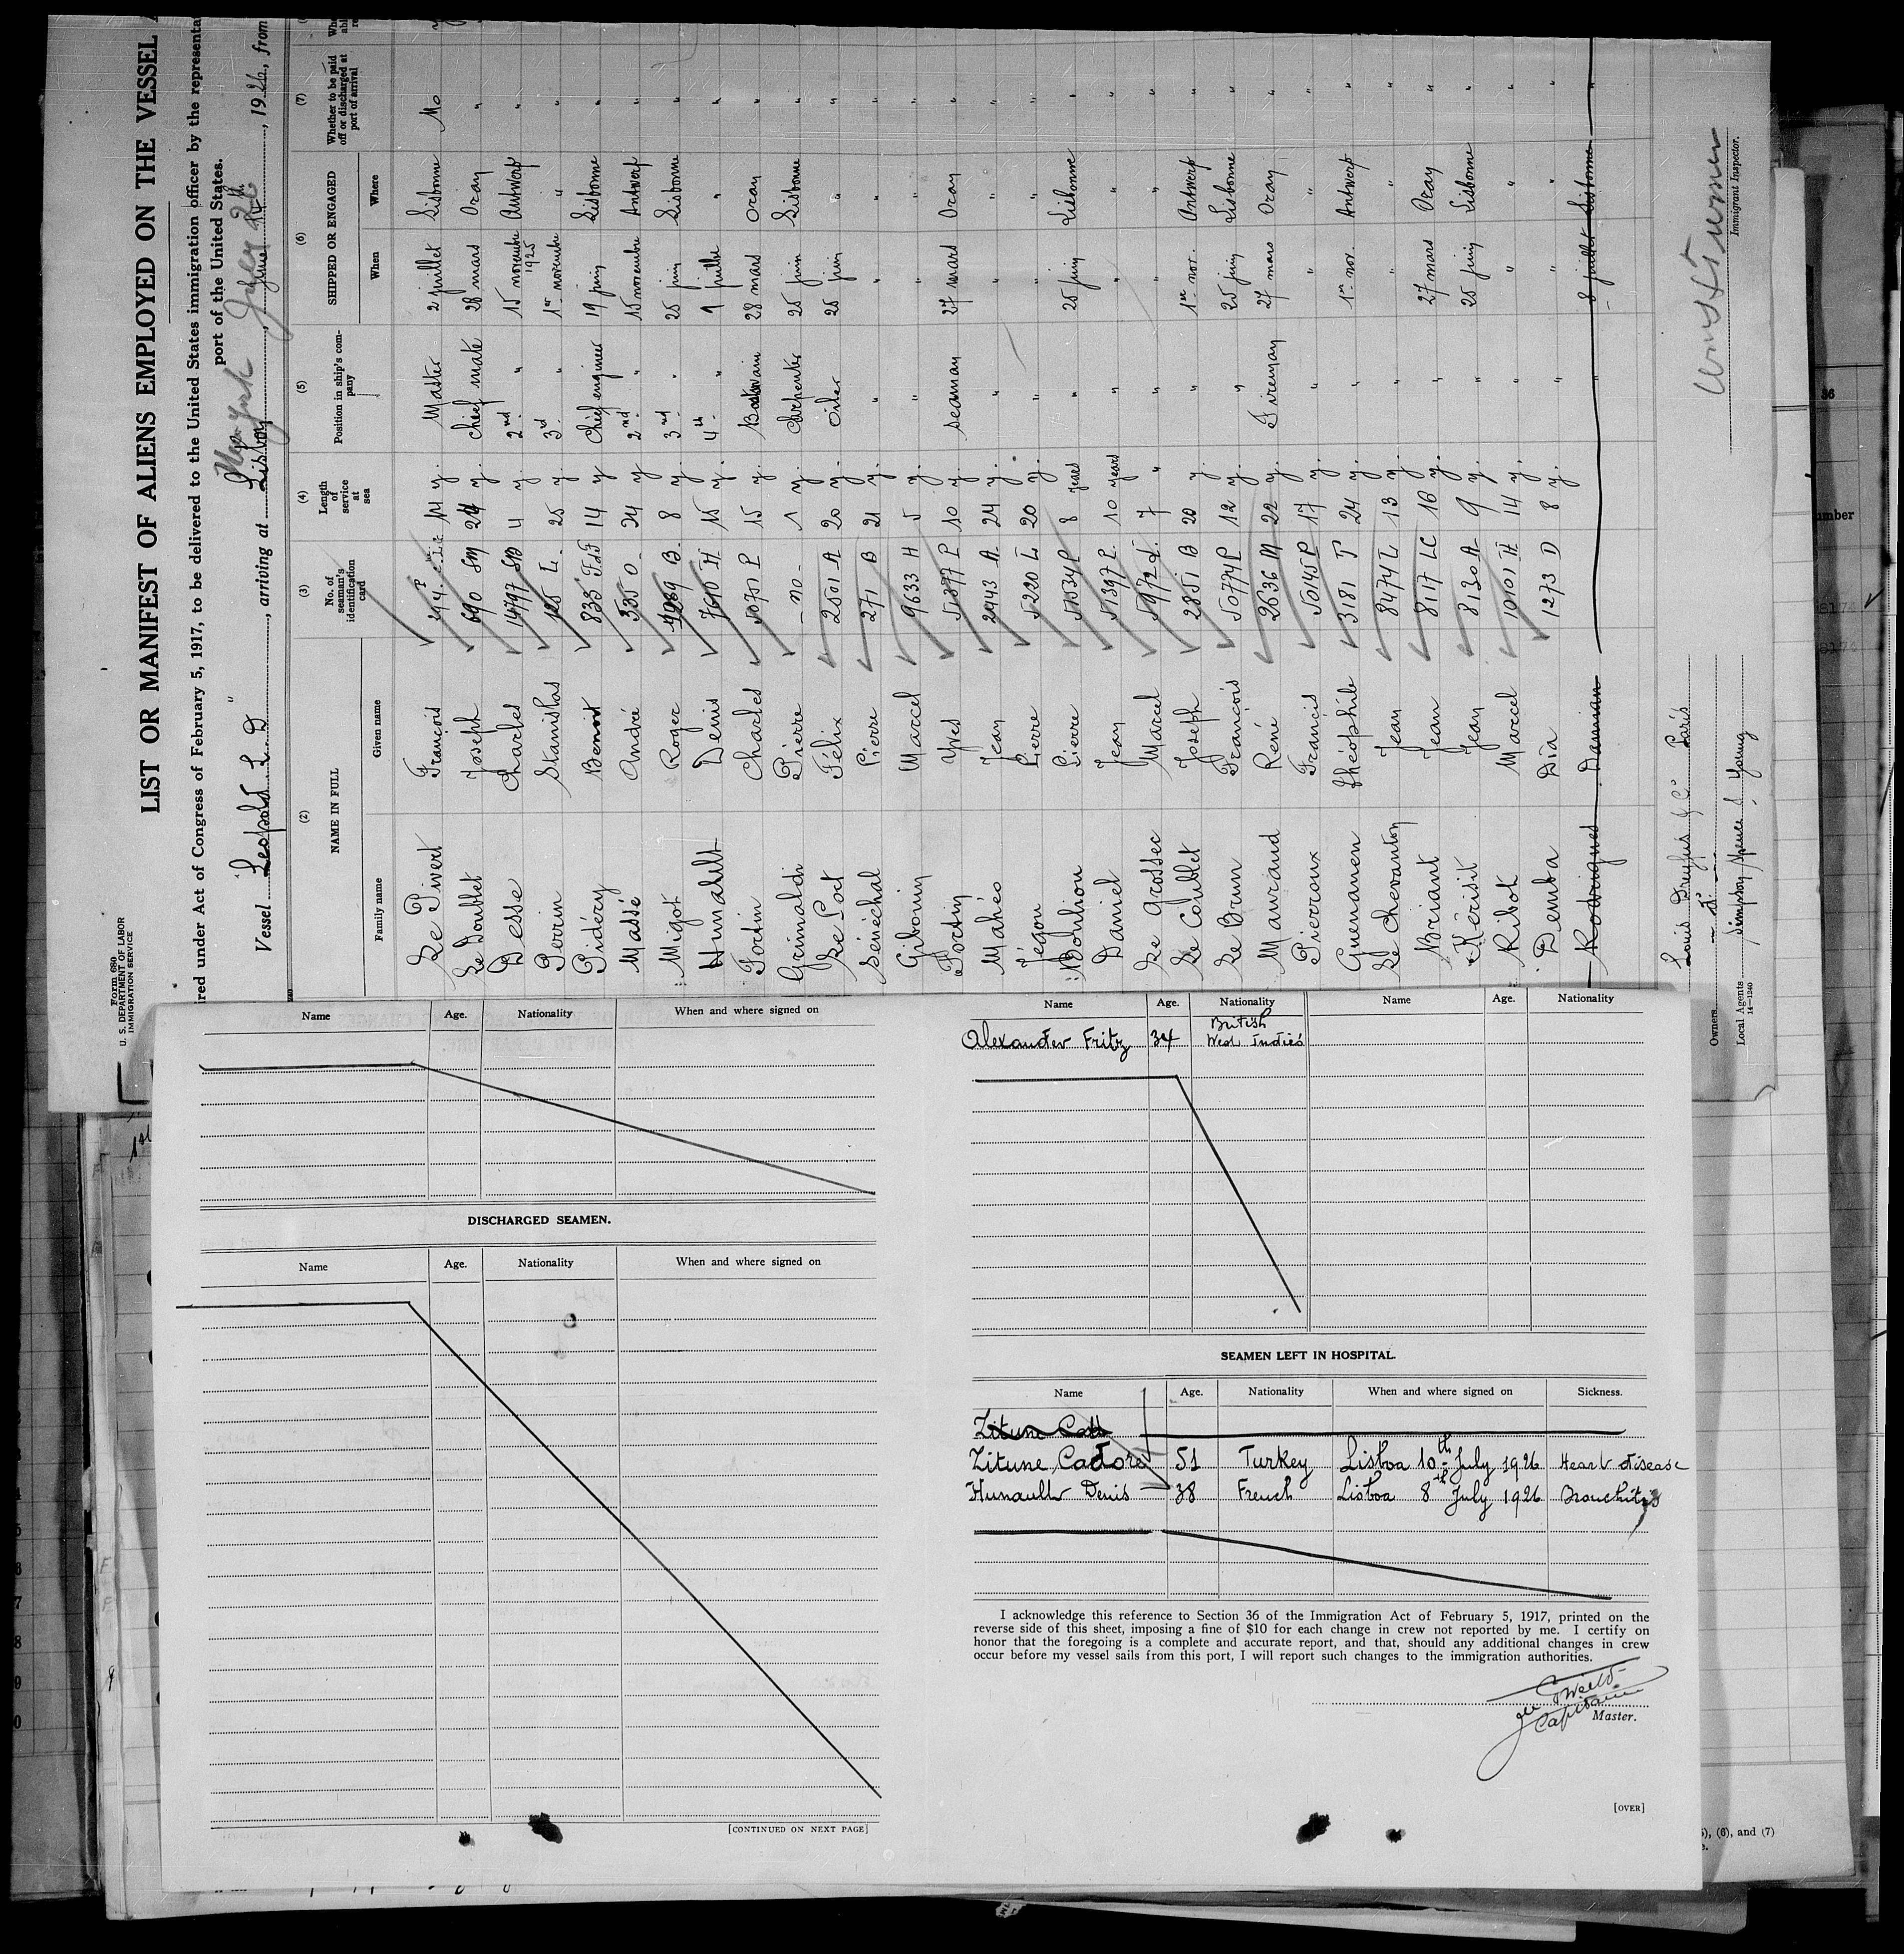 Form 680
U. S. DEPARTMENT OF LABOR
IMMIGRATION SERVICE
LIST OR MANIFEST OF ALIENS EMPLOYED ON THE VESSEL
red under Act of Congress of February 5, 1917, to be delivered to the United States immigration officer by the representa
port of the United States.
Vessel "Leopold L. D", arriving at Lisbon New York July 1926, from
(2) (3) (4) (5) (6) (7)
NAME IN FULL No. of seaman's identification card Length of service at sea Position in ship's company SHIPPED OR ENGAGED Whether to be paid off or discharged at port of arrival
Family name Given name When Where
Le Pivert François 14 y. Master 2 juillet Lisbonne No
Le Doublet Joseph 690 SM 24 y. Chief mate 28 mars Oran "
Desse Charles 14797 SB 4 y. 2nd " 15 novembre 1925 Antwerp "
Perrin Stanislas 125 L. 25 y. 3d " 1er novembre " "
Pidéry Benoit 835 14 y Chief engineer 19 juin Lisbonne "
Massé André 335 O 24 y 2nd " 15 novembre Antwerp "
Migot Roger B. 8 y. 3rd " 25 juin Lisbonne "
Hunault Denis 7610 H 15 y. 4th " 9 juillet " "
Fortin Charles 5075 P 15 y. Boatswain 28 mars Oran "
Grimaldi Pierre - no - 1 y. Carpenter 25 juin Lisbonne "
Le Port Félix 2501 A 20 y. Oiler 25 juin " "
Sénéchal Pierre 271 B 21 y. " " " "
Gibonin Marcel 9633 H 5 y. " " " "
Fortin Yves 51377 P 10 y. Seaman 27 mars Oran "
Mahéo Jean 2443 A 24 y. " " " "
Jégou Pierre 5220 L 20 y. " " " "
Bouhon Pierre 51534 P 8 years " 25 juin Lisbonne "
Daniel Jean 51397 P. 10 years " " " "
Le Grossec Marcel 5972 L. 7 " " " " "
Le Coublet Joseph 2851 B 20 y " 1er nov. Antwerp "
Le Brun François 50774 P 12 y. " 25 juin Lisbonne "
Mauraud René 2636 M 22 y. Fireman 27 mars Oran "
Pierroux Francis 50545 P 17 y. " " " "
Guemanen Théophile 3181 T 24 y. " 1er nov. Antwerp "
Le Chevanton Jean 8474 L 13 y. " " " "
Briant Jean 8117 LC 16 y. " 27 mars Oran "
Kérisit Jean 8130 A 9 y. " 25 juin Lisbonne "
Ribot Marcel 10101 H 14 y. " " " "
Demba Dia 1273 D 8 y. " " " "
Rodrigues Damian " 8 juillet Lisbonne "
Owners Louis Dreyfus & C° Paris
Local Agents Simpson, Spence & Young
14—1240
Immigrant Inspector.
Name Age. Nationality When and where signed on
DISCHARGED SEAMEN.
Name Age. Nationality When and where signed on
[CONTINUED ON NEXT PAGE]
Name Age. Nationality Name Age. Nationality
Alexander Fritz 34 British West Indies
SEAMEN LEFT IN HOSPITAL.
Name Age. Nationality When and where signed on Sickness.
Zitune Catt
Zitune Cadore 51 Turkey Lisboa 10th July 1926 Heart disease
Hunault Denis 38 French Lisboa 8th July 1926 Bronchitis
I acknowledge this reference to Section 36 of the Immigration Act of February 5, 1917, printed on the
reverse side of this sheet, imposing a fine of $10 for each change in crew not reported by me. I certify on
honor that the foregoing is a complete and accurate report, and that, should any additional changes in crew
occur before my vessel sails from this port, I will report such changes to the immigration authorities.
Capitaine
Master.
[OVER]
(6), and (7)